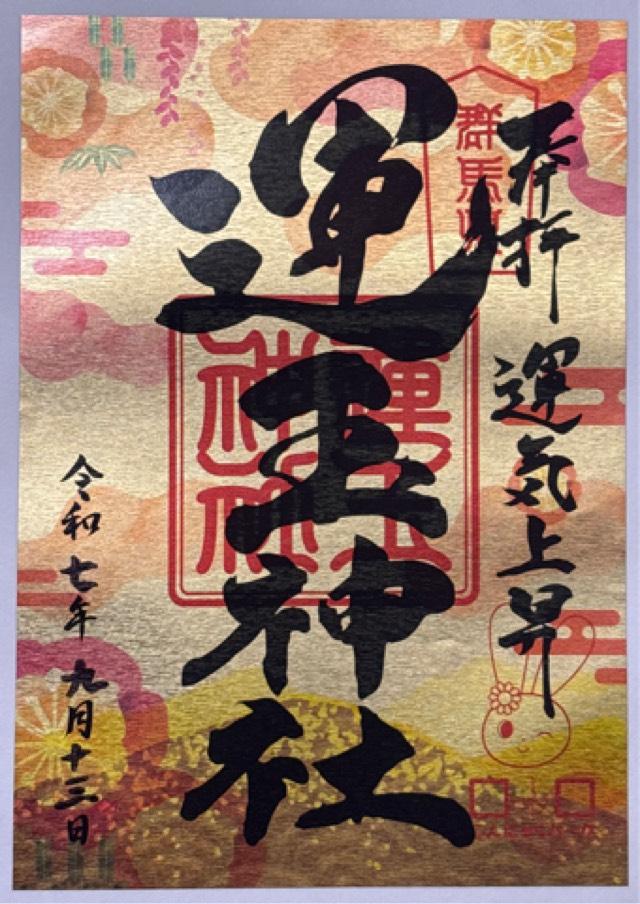 奉拝
運気上昇
群馬県
運玉神社
運玉神社
令和七年九月十三日